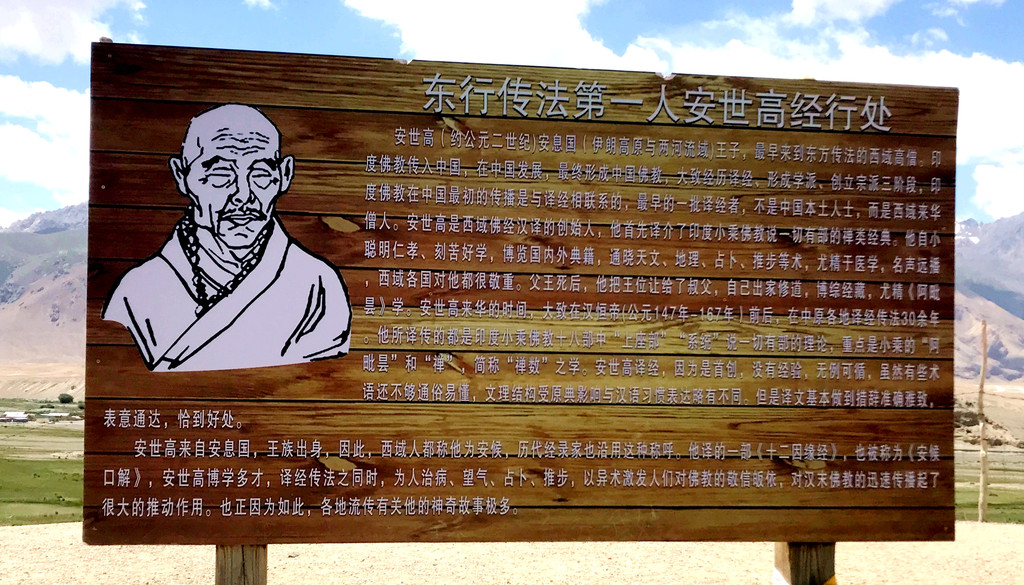 东行传法第一人安世高经行处
安世高（约公元二世纪)安息国（伊朗高原与两河流域)王子，最早来到东方传法的西域高僧。印
度佛教传入中国，在中国发展，最终形成中国佛教，大致经历译经、形成学派、创立宗派三阶段，印
度佛教在中国最初的传播是与译经相联系的，最早的一批译经者，不是中国本土人士，而是西域来华
僧人。安世高是西域佛经汉译的创始人，他首先译介了印度小乘佛教说一切有部的禅类经典。他自小
聪明仁孝、刻苦好学，博览国内外典籍，通晓天文、地理、占卜、推步等术，尤精于医学，名声远播
，西域各国对他都很敬重。父王死后，他把王位让给了叔父，自己出家修道，博综经藏，尤精《阿毗
昙》学。安世高来华的时间，大致在汉恒帝(公元147年—167年）前后，在中原各地译经传法30余年
。他所译传的都是印度小乘佛教十八部中“上座部”“系统”说一切有部的理论，重点是小乘的“阿
毗昙”和“禅”，简称“禅数”之学。安世高译经，因为是首创，没有经验，无例可循，虽然有些术
语还不够通俗易懂，文理结构受原典影响与汉语习惯表达略有不同。但是译文基本做到措辞准确雅致，
表意通达，恰到好处。
安世高来自安息国，王族出身，因此，西域人都称他为安候，历代经录家也沿用这种称呼。他译的一部《十二因缘经》，也被称为《安候
口解》，安世高博学多才，译经传法之同时，为人治病、望气、占卜、推步，以异术激发人们对佛教的敬信皈依，对汉末佛教的迅速传播起了
很大的推动作用。也正因为如此，各地流传有关他的神奇故事极多。